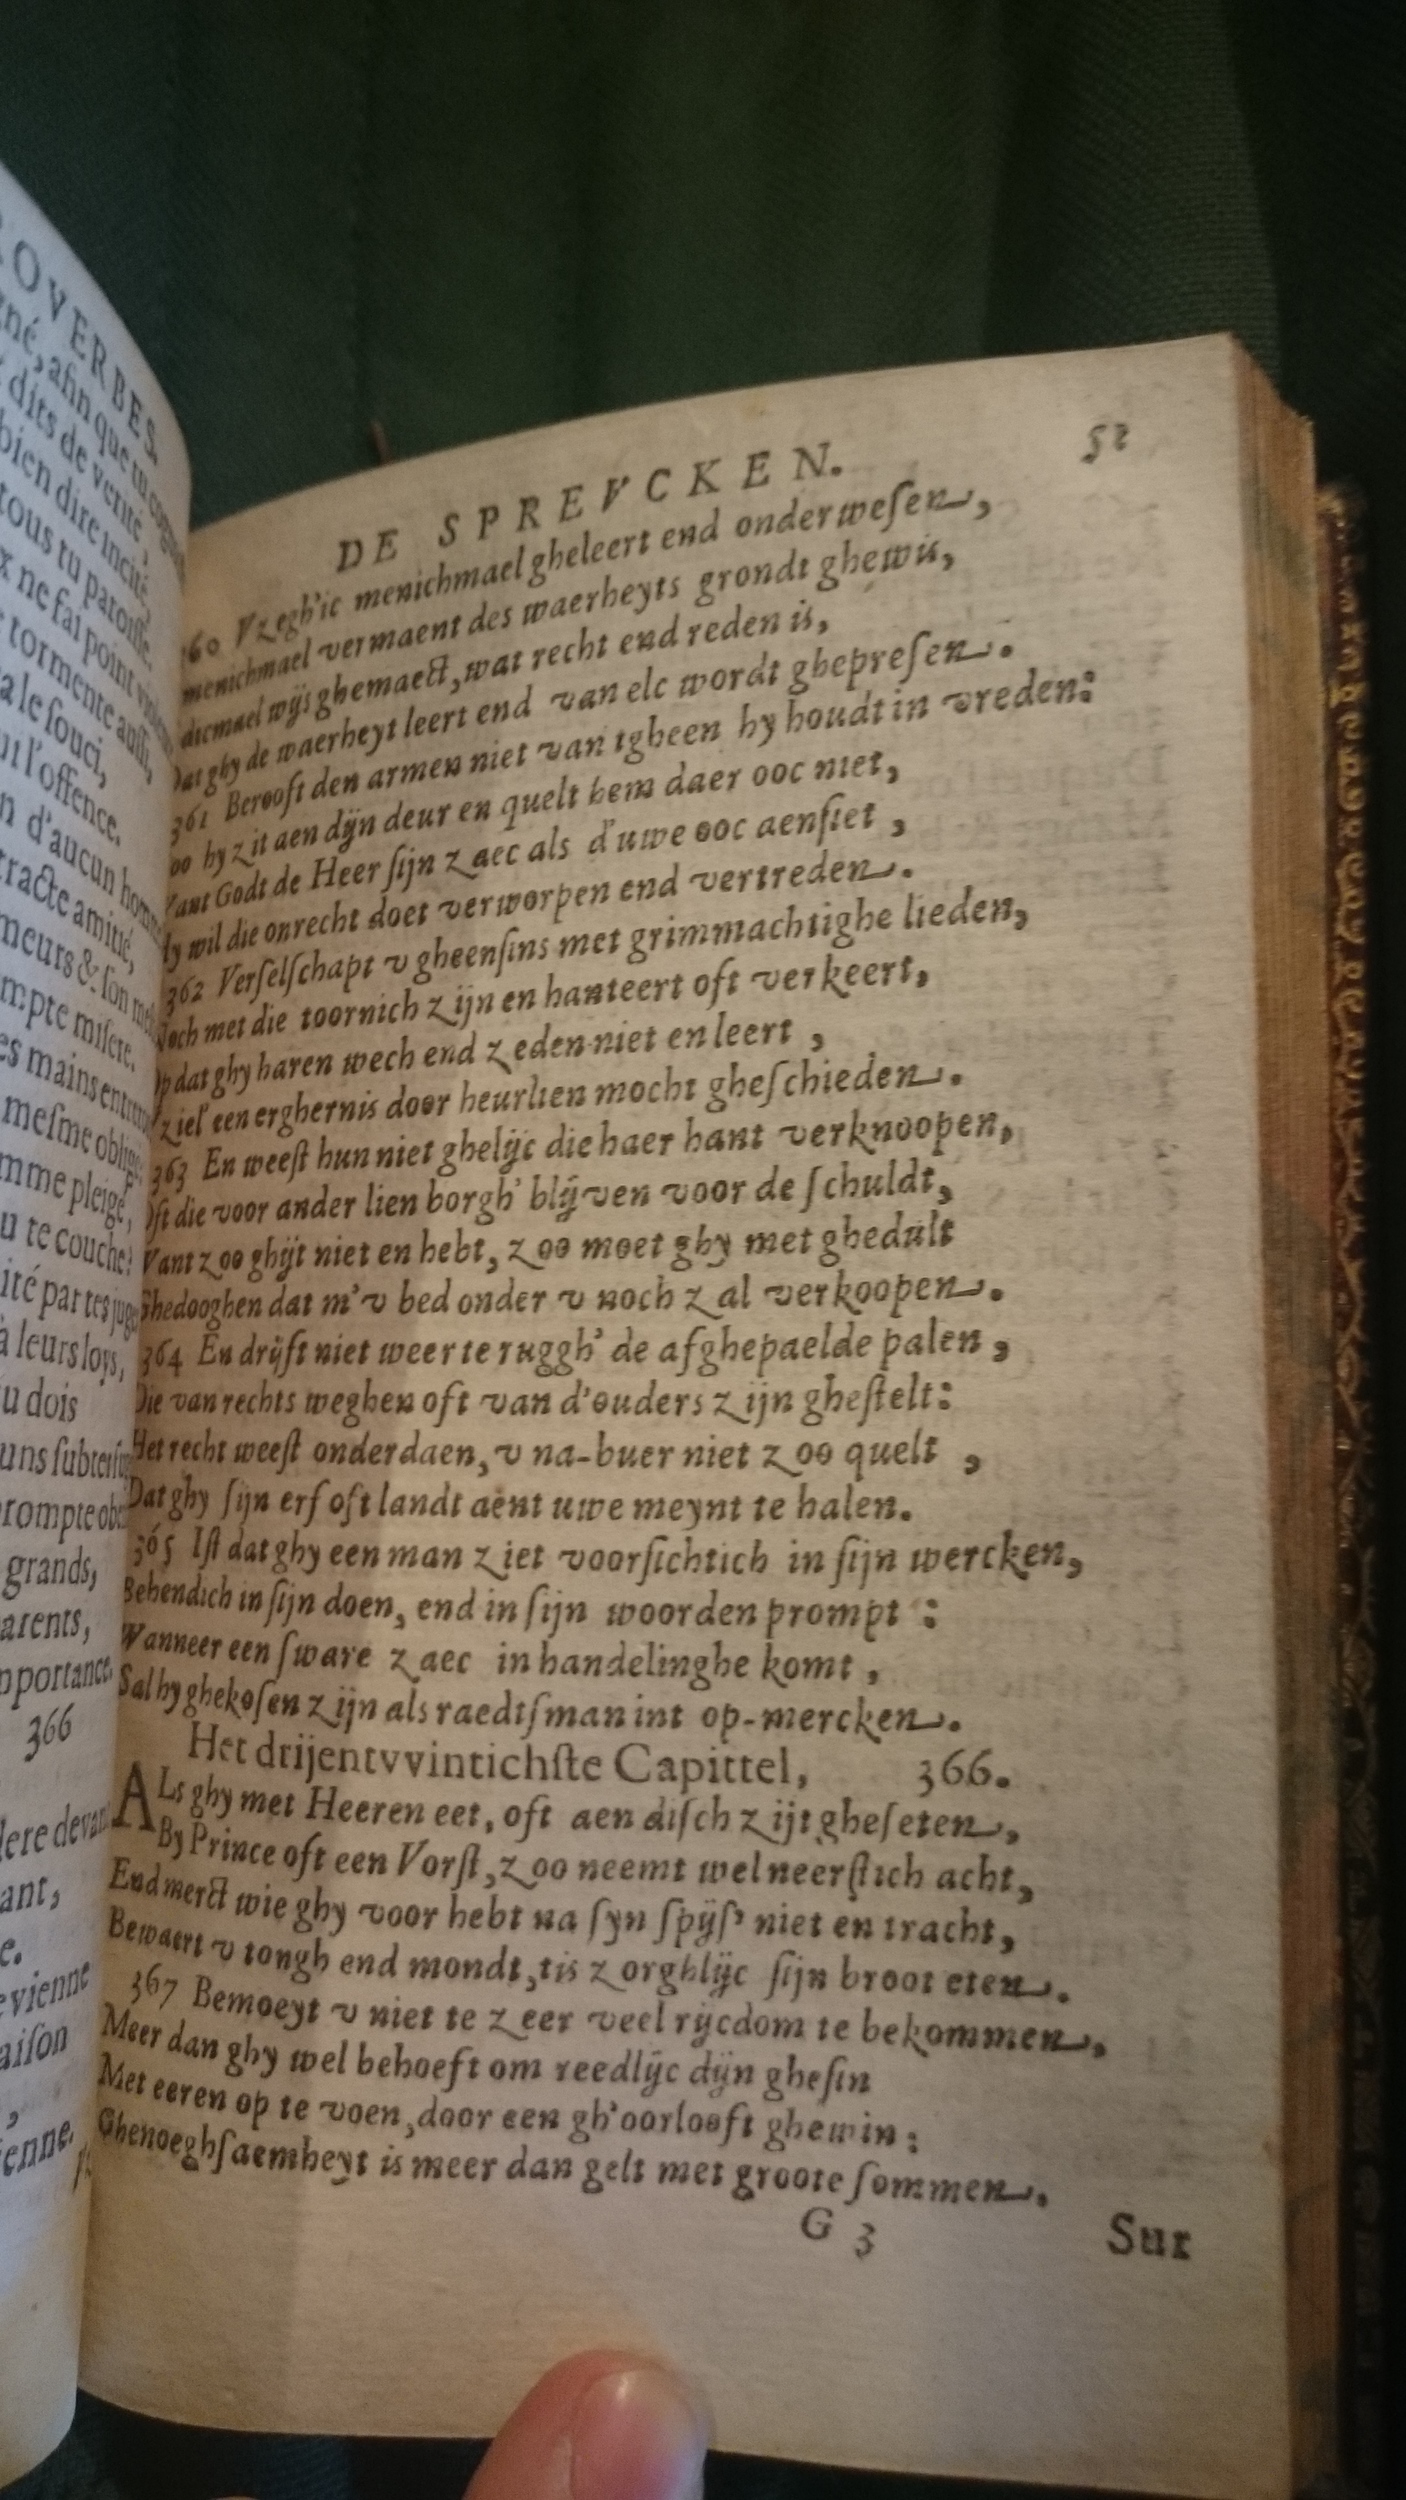 ROVERBES.
gné, afin que tu
dits de verité,
bien dire incité,
tous tu paroisse.
x ne fai point
tormente aussi,
a le souci,
l'offence.
n d'aucun
tracte amitié,
meurs & son
mpte misere.
es mains
mesme
mme pleige,
u te couche:
ité par tes
à leurs loys,
u dois
uns
prompte
grands,
arents,
mportance.
366
ant,
e.
evienne
aison
,
ienne.
DE SPREVCKEN. 52
360 V zegh'ic menichmael gheleert end onderwesen,
menichmael vermaent des waerheyts grondt ghewis,
dicmael wijs ghemaect, wat recht end reden is,
Dat ghy de waerheyt leert end van elc wordt ghepresen.
361 Berooft den armen niet van tgheen hy houdt in vreden:
oo hy zit aen dijn deur en quelt hem daer ooc niet,
Want Godt de Heer sijn zaec als d'uwe ooc aensiet,
Hy wil die onrecht doet verworpen end vertreden.
362 Verselschapt v gheensins met grimmachtighe lieden,
Noch met die toornich zijn en hanteert oft verkeert,
Op dat ghy haren wech end zeden niet en leert,
V ziel' een erghernis door heurlien mocht gheschieden.
363 En weest hun niet ghelijc die haer hant verknoopen,
Oft die voor ander lien borgh' blijven voor de schuldt,
Want zoo ghijt niet en hebt, zoo moet ghy met ghedult
Ghedooghen dat m'v bed onder v noch zal verkoopen.
364 En drijft niet weer te ruggh' de afghepaelde palen,
Die van rechts weghen oft van d'ouders zijn ghestelt:
Het recht weest onderdaen, v na-buer niet zoo quelt,
Dat ghy sijn erf oft landt aent uwe meynt te halen.
365 Ist dat ghy een man ziet voorsichtich in sijn wercken,
Behendich in sijn doen, end in sijn woorden prompt:
Wanneer een sware zaec in handelinghe komt,
Sal hy ghekosen zijn als raedtsman int op-mercken.
Het drijentvvintichste Capittel, 366.
ALs ghy met Heeren eet, oft aen disch zijt gheseten,
By Prince oft een Vorst, zoo neemt wel neerstich acht,
End merct wie ghy voor hebt na syn spijs' niet en tracht,
Bewaert v tongh end mondt, tis zorghlijc sijn broot eten.
367 Bemoeyt v niet te zeer veel rijcdom te bekommen,
Meer dan ghy wel behoeft om reedlijc dijn ghesin
Met eeren op te voen, door een gh'oorlooft ghewin:
Ghenoeghsaemheyt is meer dan gelt met groote sommen.
G 3 Sur